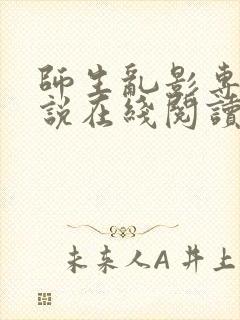 師生亂影專
說在綫閱讀
未来人A 井上